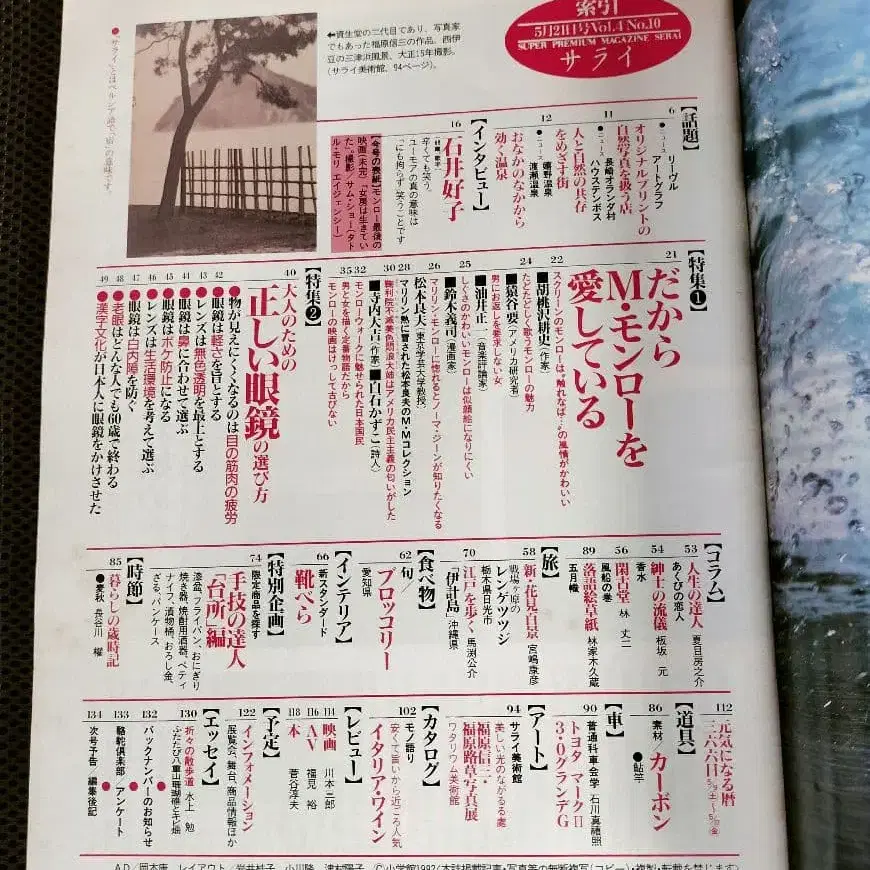 索引
5月21日号 Vol.4 No.10
SUPER PREMIUM MAGAZINE SERAI
サライ
←資生堂の二代目であり、写真家
でもあった福原信三の作品。西伊
豆の三津浜風景、大正15年撮影。
（サライ美術館、94ページ）。
●「サライ」とはペルシア語で「宿」の意味です。
【話題】
6 ●ニュース リーヴル
アートグラフ
オリジナルプリントの
自然写真を扱う店
11 ●ニュース 長崎オランダ村
ハウステンボス
人と自然の共存
をめざす街
12 ●ニュース 嬉野温泉
渡瀬温泉
おなかのなかから
効く温泉
【インタビュー】
16 石井好子
辛くても笑う。
ユーモアの真の意味は
「にも拘らず」笑うことです
【今号の表紙】モンロー最後の
映画（未完）「女房は生きてい
た」。撮影／サム・ショー（タト
ル・モリ エイジェンシー）
【特集①】
21 だから
M・モンローを
愛している
スクリーンのモンローは“触れなば…”の風情がかわいい
22 ■胡桃沢耕史（作家）
たどたどしく歌うモンローの魅力
24 ■猿谷 要（アメリカ研究者）
男にお返しを要求しない女
■油井正一（音楽評論家）
25 しぐさのかわいいモンローは似顔絵になりにくい
■鈴木義司（漫画家）
26 マリリン・モンローに惚れるとノーマ・ジーンが知りたくなる
松本良夫（東京学芸大学教授）
28 マリリン熱に冒された松本良夫のM・Mコレクション
30 鞠利院不滅美色悶浪大姉はアメリカ民主主義の匂いがした
■寺内大吉（作家） ■白石かずこ（詩人）
32 モンローウォークに魅せられた日本国民
35 男と女を描く定番物語だから
モンローの映画はけっして古びない
【特集②】
40 大人のための
正しい眼鏡の選び方
42 ●物が見えにくくなるのは目の筋肉の疲労
●眼鏡は軽さを旨とする
43 ●レンズは無色透明を最上とする
44 ●眼鏡は鼻に合わせて選ぶ
45 ●眼鏡はボケ防止になる
46 ●レンズは生活環境を考えて選ぶ
47 ●眼鏡は白内障を防ぐ
48 ●老眼はどんな人でも60歳で終わる
49 ●漢字文化が日本人に眼鏡をかけさせた
【コラム】
53 人生の達人 夏目房之介
あくびの恋人
54 紳士の流儀 板坂 元
香水
56 閑古堂 林 丈二
風船の巻
89 落語絵草紙 林家木久蔵
五月幟
【旅】
58 新・花見百景 宮嶋康彦
戦場ヶ原の
レンゲツツジ
栃木県日光市
70 江戸を歩く 馬渕公介
「伊計島」 沖縄県
【食べ物】
62 旬／
ブロッコリー
愛知県
【インテリア】
66 新スタンダード
靴べら
【特別企画】
74 限定商品を探す
手技の達人
「台所」編
漆盆、フライパン、おにぎり
焼き器、焼酎用酒器、ペティ
ナイフ、漬物桶、おろし金、
ざる、パンケース
【時節】
85 暮らしの歳時記
●麦秋 長谷川 櫂
112 元気になる暦
【道具】
86 素材／カーボン
●鮎竿
【車】
90 普通科車会学 石川真禧照
トヨタ マークⅡ
3・0グランデG
【アート】
94 サライ美術館
美しい光のながるる處
福原信三・
福原路草写真展
「ワタリウム美術館」
【カタログ】
102 モノ語り
安くて旨いから近ごろ人気
イタリア・ワイン
【レビュー】
114 映画 川本三郎
116 AV 福見 裕
118 本 菅谷淳夫
【予定】
122 インフォメーション
展覧会、舞台、商品情報ほか
【エッセイ】
130 折々の散歩道 水上 勉
ふたたび八重山珊瑚礁とキビ畑
132 バックナンバーのお知らせ●
133 駱駝倶楽部／アンケート●
134 次号予告／編集後記●
AD／岡本康 レイアウト／岩井桂子 小川隆 津村陽子 ©小学館1992（本誌掲載記事・写真等の無断複写（コピー）・複製・転載を禁じます）